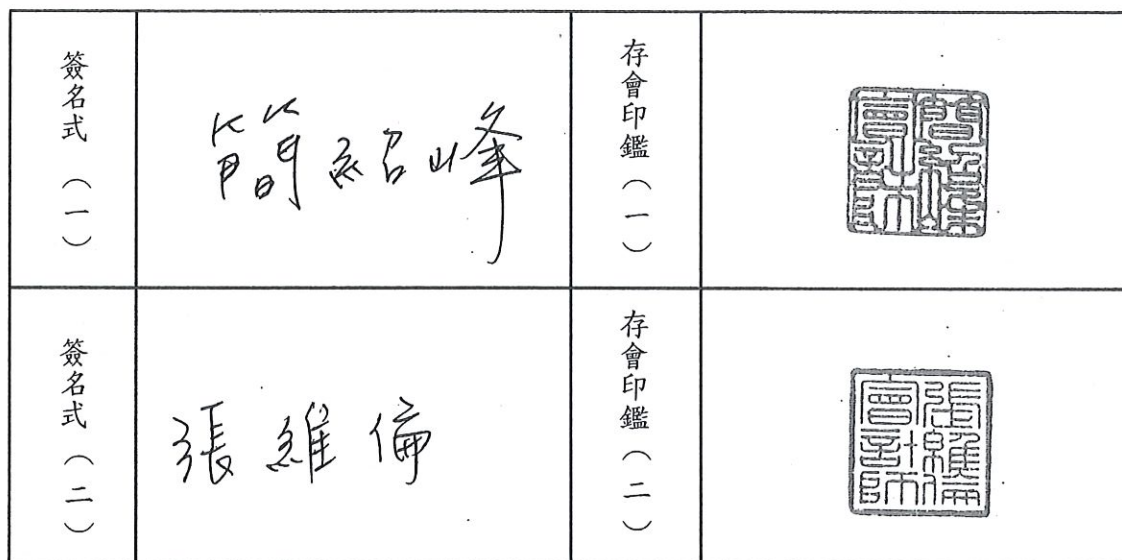 簽名式（一）
簡紹峰
存會印鑑（一）
簡紹峯會計師
簽名式（二）
張維倫
存會印鑑（二）
張維倫會計師